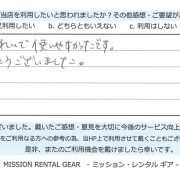 当店を利用したいと思われましたか？その他感想・ご要望が
利用したい　b. どちらともいえない　c. 利用はしない
れいで使いやすかったです。
とうございました。
いました。戴いたご感想・意見を大切に今後のサービス向上
をご利用になる方への参考の為、当HP上で利用させて戴くこともござ
是非、またのご利用機会を戴けましたら幸いです。
MISSION RENTAL GEAR - ミッション・レンタル ギア -